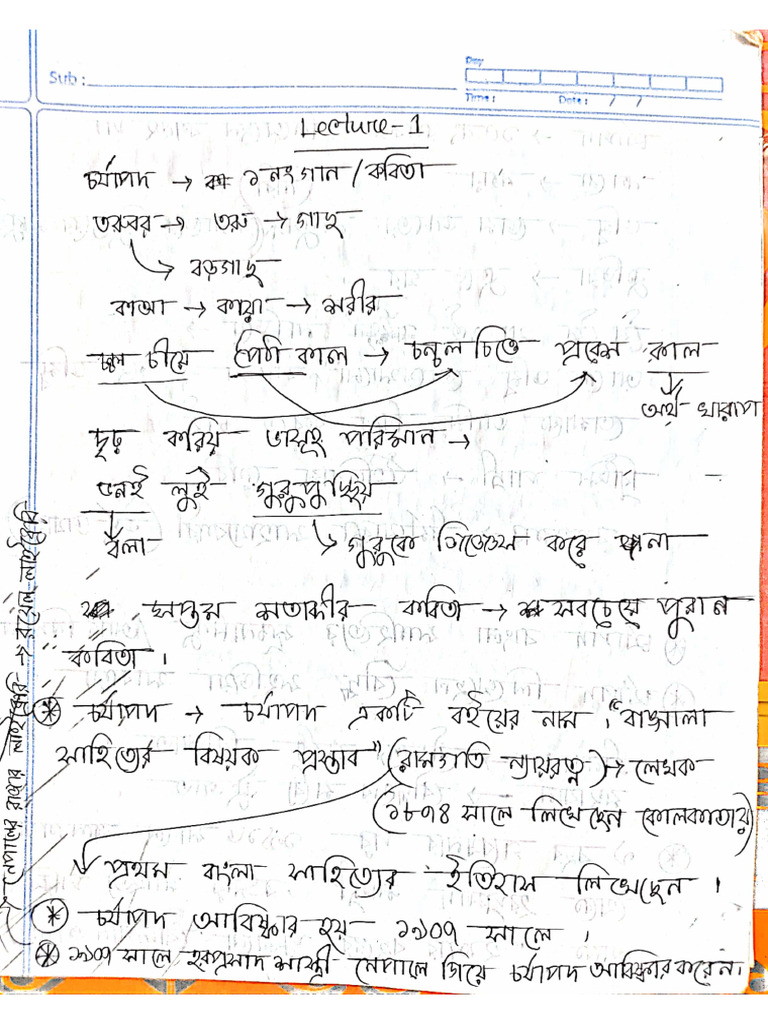 Sub :
Day
Time : Date : / /
Lecture-1
চর্যাপদ → ১নং গান / কবিতা
তরুবর → তরু → গাছ
↳ বড়গাছ
কাআ → কায়া → শরীর
চীয়ে পৈঠা কাল → চঞ্চল চিত্তে প্রবেশ কাল
অর্থ খারাপ
দৃঢ় করিয় পরিমান →
ভনই লুই গুরু পুচ্ছিয়
বলা ↳ গুরুকে জিজ্ঞেস করে
সপ্তম শতাব্দীর কবিতা → সবচেয়ে পুরান
কবিতা ।
* চর্যাপদ → চর্যাপদ একটি বইয়ের নাম । "বাঙ্গালা
সাহিত্যের বিষয়ক প্রস্তাব" (রামগতি ন্যায়রত্ন) → লেখক
(১৮৭৪ সালে লিখেছেন কোলকাতায়)
প্রথম বাংলা সাহিত্যের ইতিহাস লিখেছেন ।
* চর্যাপদ আবিষ্কার হয় ১৯০৭ সালে ।
* ১৯০৭ সালে হরপ্রসাদ শাস্ত্রী নেপালে গিয়ে চর্যাপদ আবিষ্কার করেন।
নেপালের রাজার লাইব্রেরি → রয়েল লাইব্রেরি